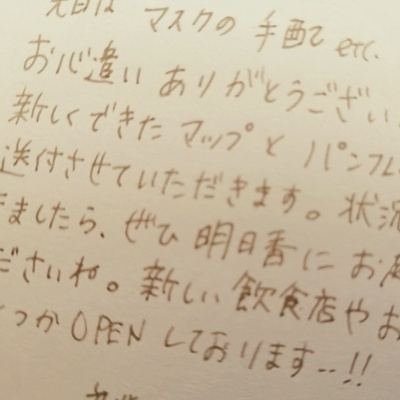 先日は マスクの 手配で etc.
お心遣い ありがとうござい
新しくできた マップと パンフレ
送付させていただきます。状況
きましたら、ぜひ 明日香に お
ださいね。新しい 飲食店や お
くつか OPEN しております…!!